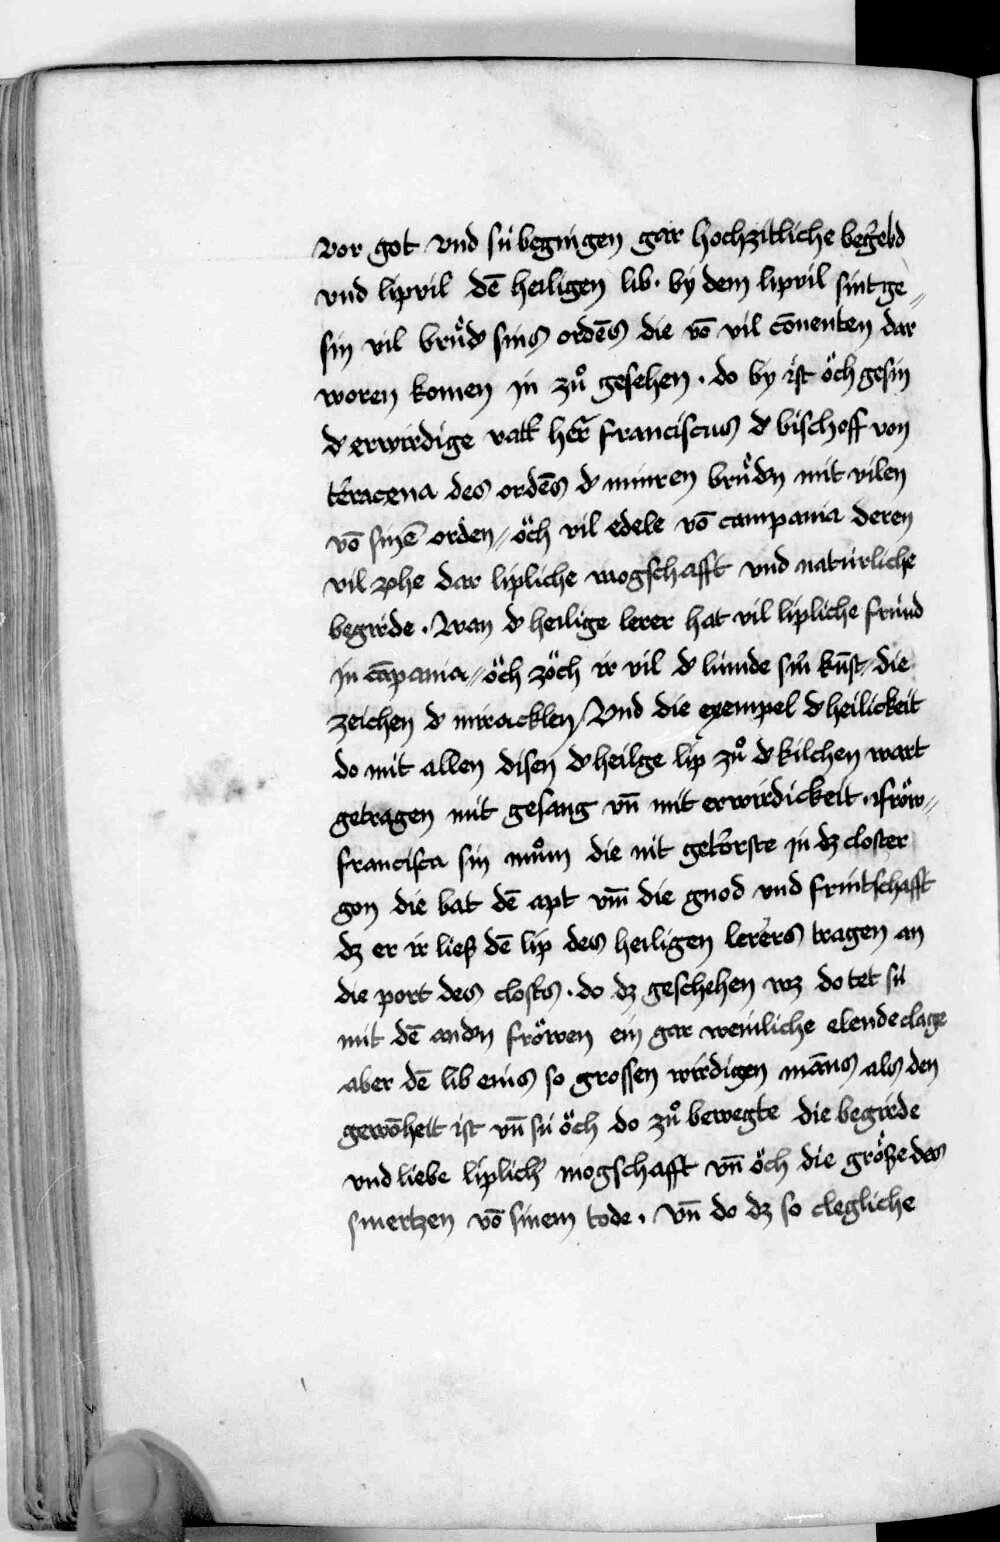 vor got vnd sú begingen gar hochzitliche begerd
vnd lipvil dē heiligen lib · by dem lipvil sint ge„
sin vil brůd͛ sins ordēs die vō vil cōuenten dar
woren komen jn zů gesehen · do by ist öch gesin
d͛ erwirdige vatt͛ her̄ franciscus d͛ bischoff von
t͛racena des ordēs d͛ minren brůd͛n mit vilen
vō sinē orden„ öch vil edele vō campania deren
vil zohe dar lipliche mogschafft vnd naturliche
begirde · Wan d͛ heilige lerer hat vil lipliche frúnd
jn cāpania„ öch zöch ir vil d͛ lúmde sin͛ kūst die
zeichen d͛ miracklen / Vnd die exempel d͛ heilickeit
do mit allen disen d͛ heilge lip zů d͛ kilchen wart
getragen mit gesang vn̄ mit erwirdickeit · fröw„
francisca sin mům die nit getorste jn dz closter
gon die bat dē apt vm̄ die gnod vnd fruntschafft
dz er ir liesz dē lip des heiligen lerers tragen an
die port des clost͛s · do dz geschehen wz do tet sú
mit dē and͛n fröwen ein gar weinliche elende clage
aber dē lib eins so grossen wirdigen māns als den
gewōheit ist vn̄ sú öch do zů bewegte die begirde
vnd liebe liplich͛ mogschafft vn̄ öch die grösze des
smertzen vō sinem tode · Vn̄ do dz so clegliche